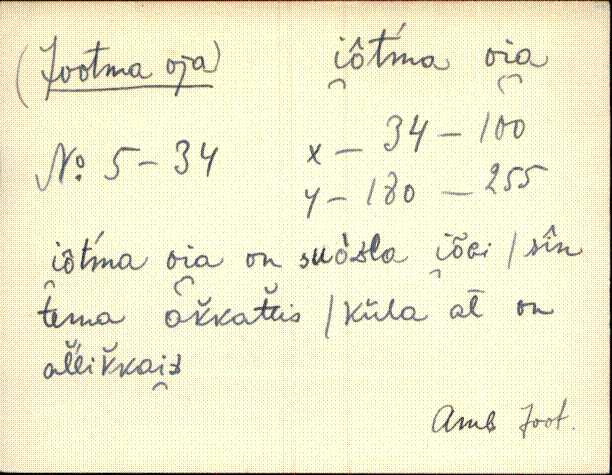 (Jootma oja) i̯ôt́ma oi̯a
№ 5-34 x — 34 — 100
y — 180 — 255
i̯ôt́ma oi̯a on suòsla i̯õɢi / sîn
tema ǒkkatтis / küla al̄ on
allikkai̯s
Amb Joot.